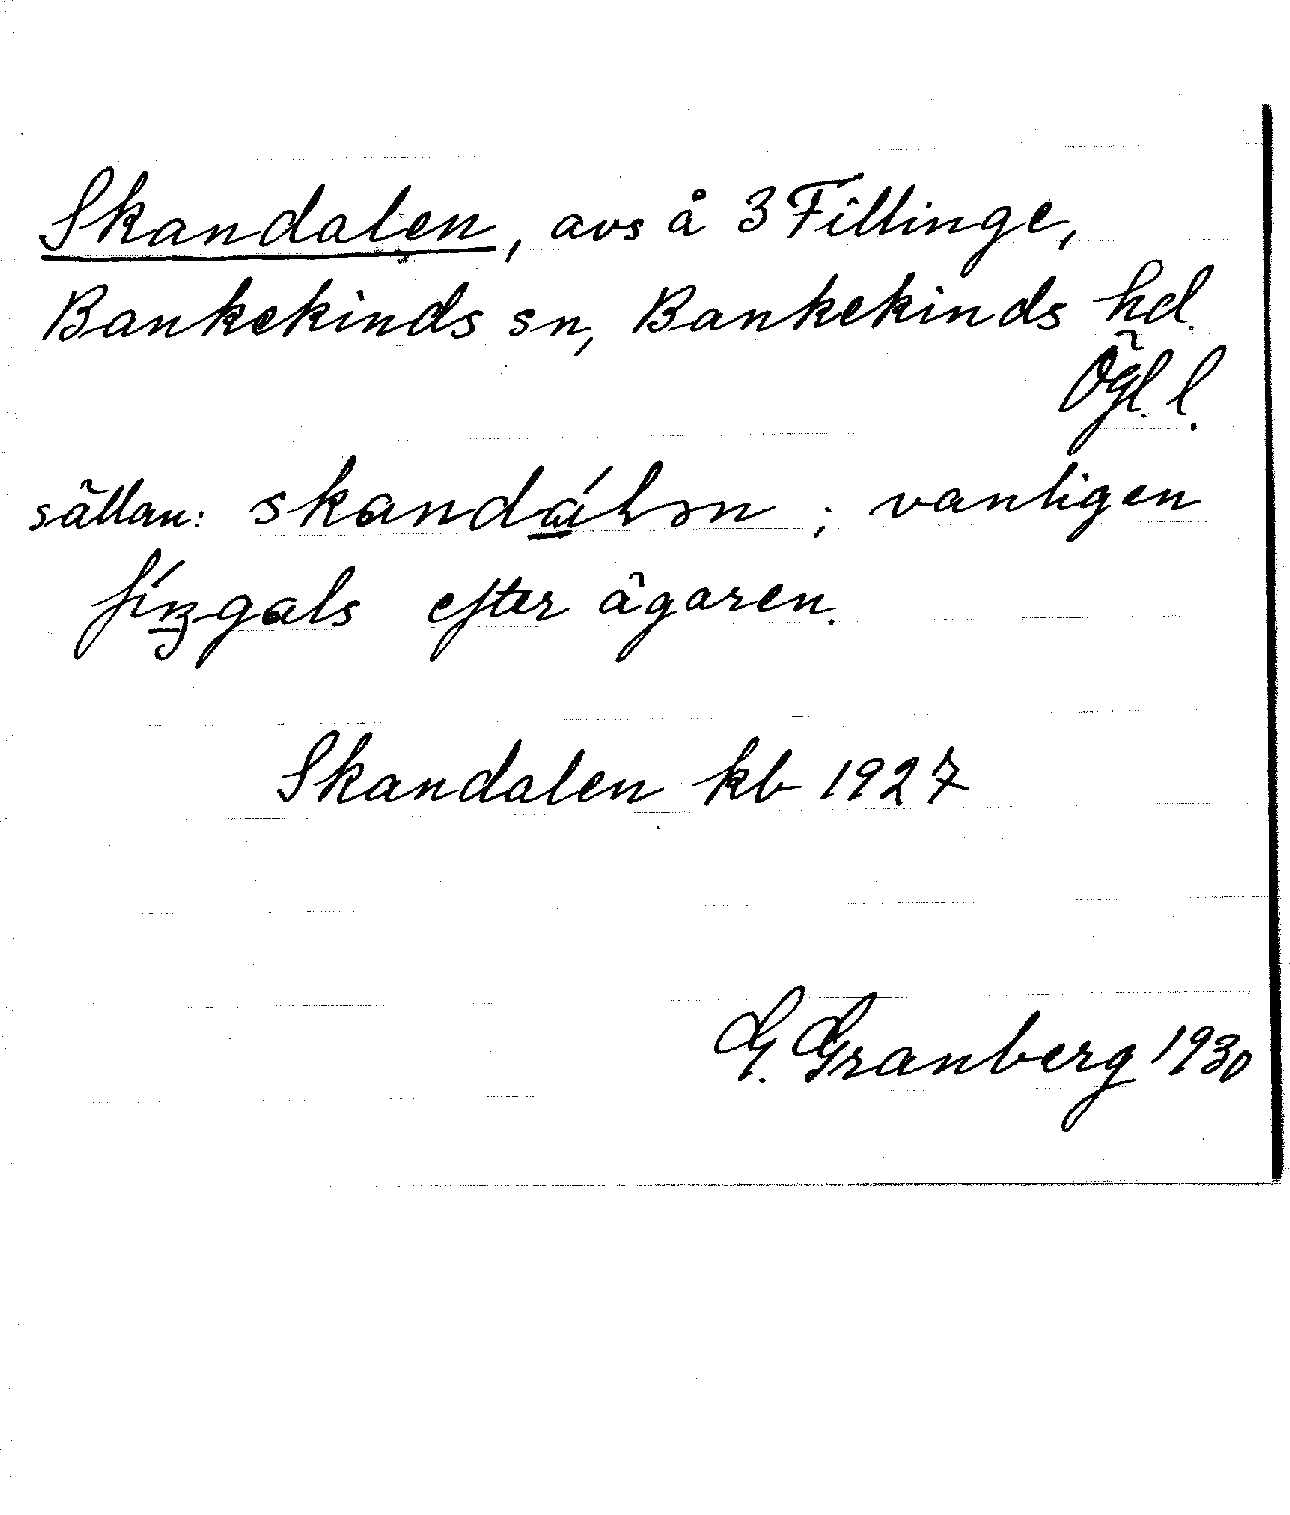 Skandalen, avs å 3 Fillinge,
Bankekinds sn, Bankekinds hd.
Ögl. l.
sällan: skandálən; vanligen
fíŋgals efter ägaren.
Skandalen kb 1927
G. Granberg 1930